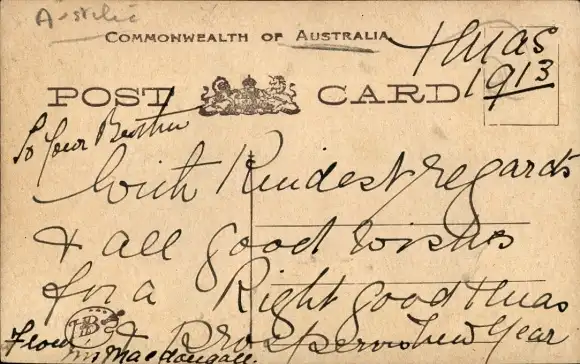 Australia
COMMONWEALTH OF AUSTRALIA
Xmas
1913
POST CARD
To Your Brother
With Kindest regards
& all good wishes
for a Right good Xmas
& Prosperous New Year
From
Mr Macdougall.